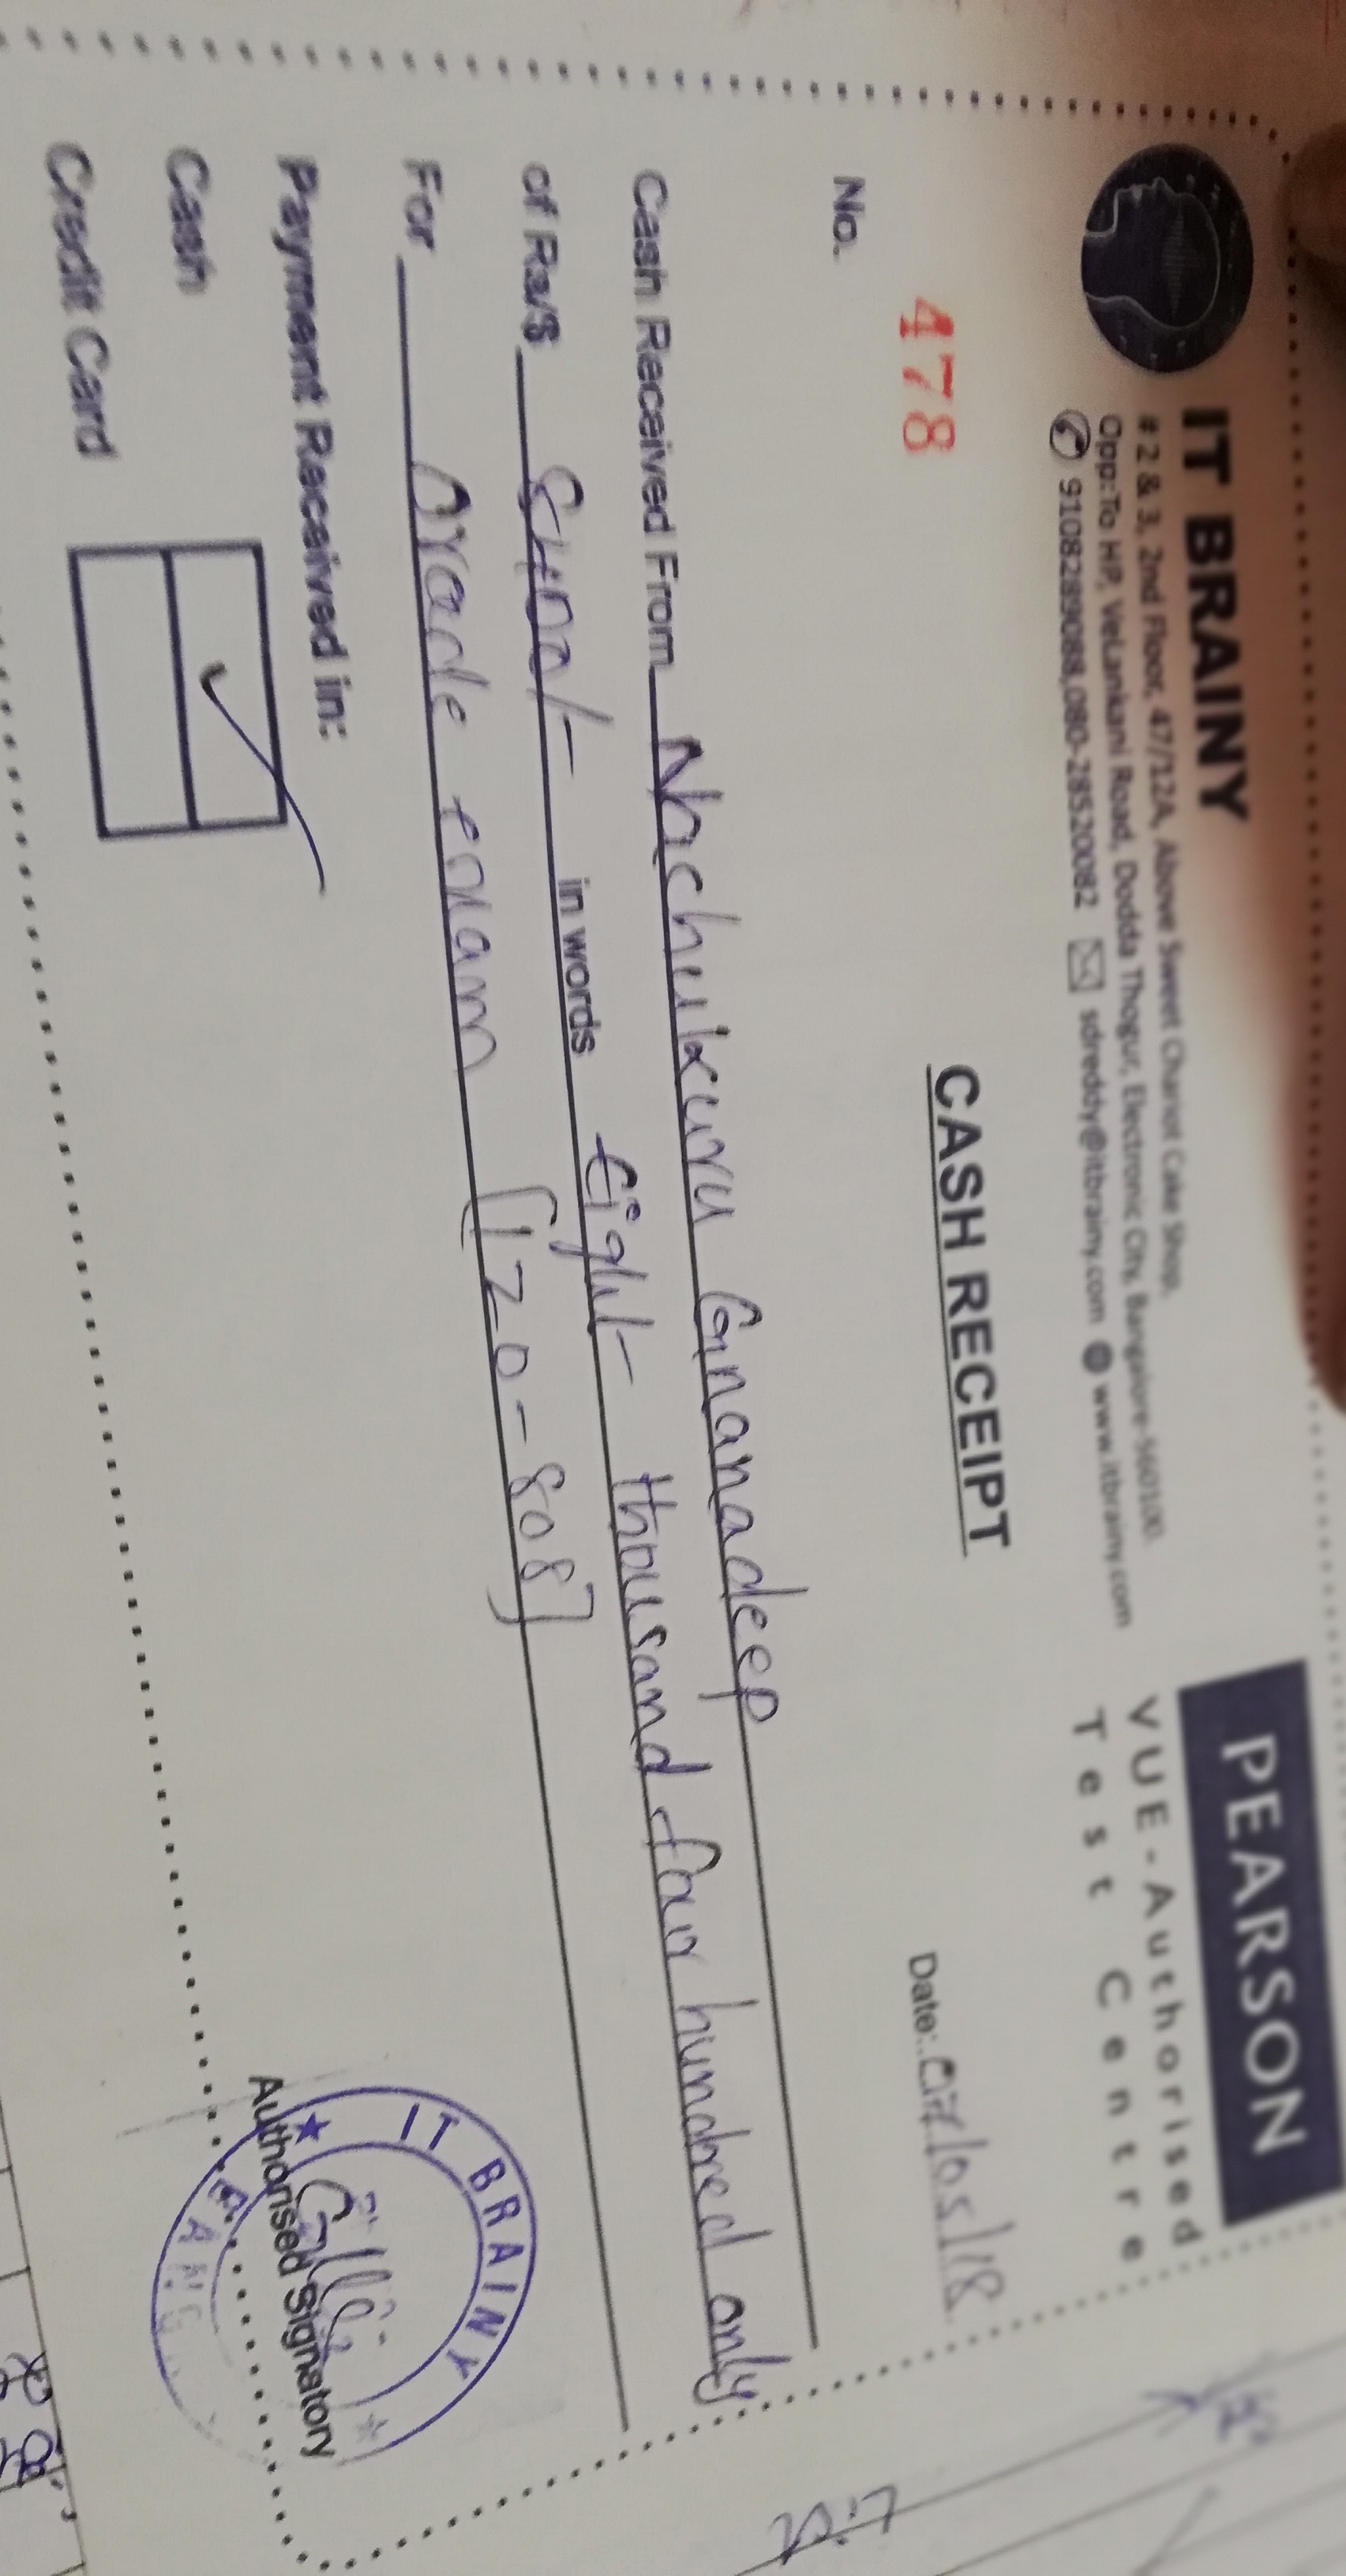 IT BRAINY
# 2 & 3, 2nd Floor, 47/12A, Above Sweet Chariot Cake Shop,
Opp:To HP, VeLankani Road, Dodda Thogur, Electronic City, Bangalore-560100.
9108289088,080-28520082 sdreddy@itbrainy.com www.itbrainy.com
PEARSON
VUE-Authorised
Test Centre
CASH RECEIPT
No. 478
Date: /05/18
Cash Received From Nachukuru Gnanadeep
of Rs/$ 8400/- in words Eight thousand four hundred only
For Oracle exam [1Z0-808]
Payment Received in:
Cash ✓
Credit Card
IT BRAINY
Authorised Signatory